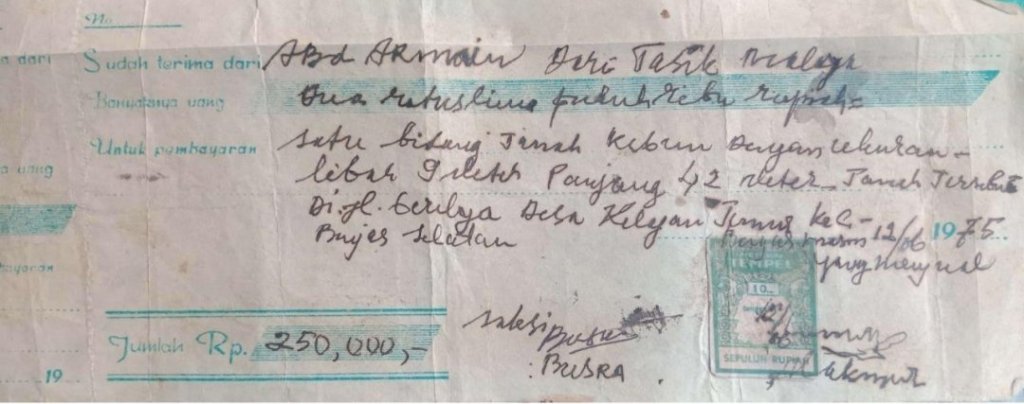 No.
a dari
Sudah terima dari ABd ARMAIN Dari TaSik malaya
Banyaknya uang Dua ratus lima puluh ribu rupiah =
Untuk pembayaran satu bidang Tanah Kebun Dengan ukuran -
a uang
lebar 9 meter Panjang 42 meter - Tanah Tersebut
Di. Jl. Gerilya Desa Timur Kec -
Selatan 12/06 1975
yang menjual
bayaran
TEMPEL
10
Jumlah Rp. 250,000,-
saksi
SEPULUH RUPIAH
: BUSRA .
19